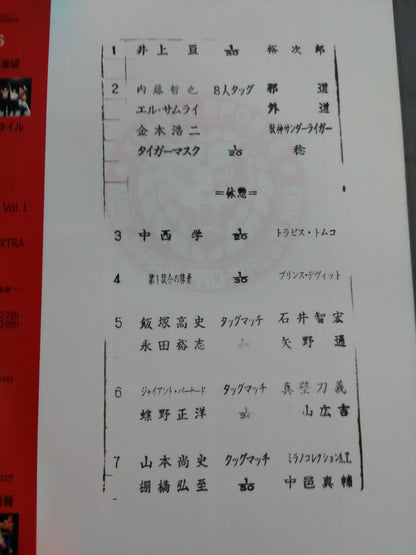 6
展望
タイル
Vol.1
EXTRA
1 井上亘 1/30 裕次郎
2 内藤哲也 8人タッグ 邪道
エル・サムライ 外道
金本浩二 獣神サンダーライガー
タイガーマスク 1/20 稔
=休憩=
3 中西学 1/20 トラビス・トムコ
4 第1試合の勝者 1/30 プリンス・デヴィット
5 飯塚高史 タッグマッチ 石井智宏
永田裕志 矢野通
6 ジャイアント・バーナード タッグマッチ 真壁刀義
蝶野正洋 1/30 山広吉
7 山本尚史 タッグマッチ ミラノコレクションA.T.
棚橋弘至 1/30 中邑真輔